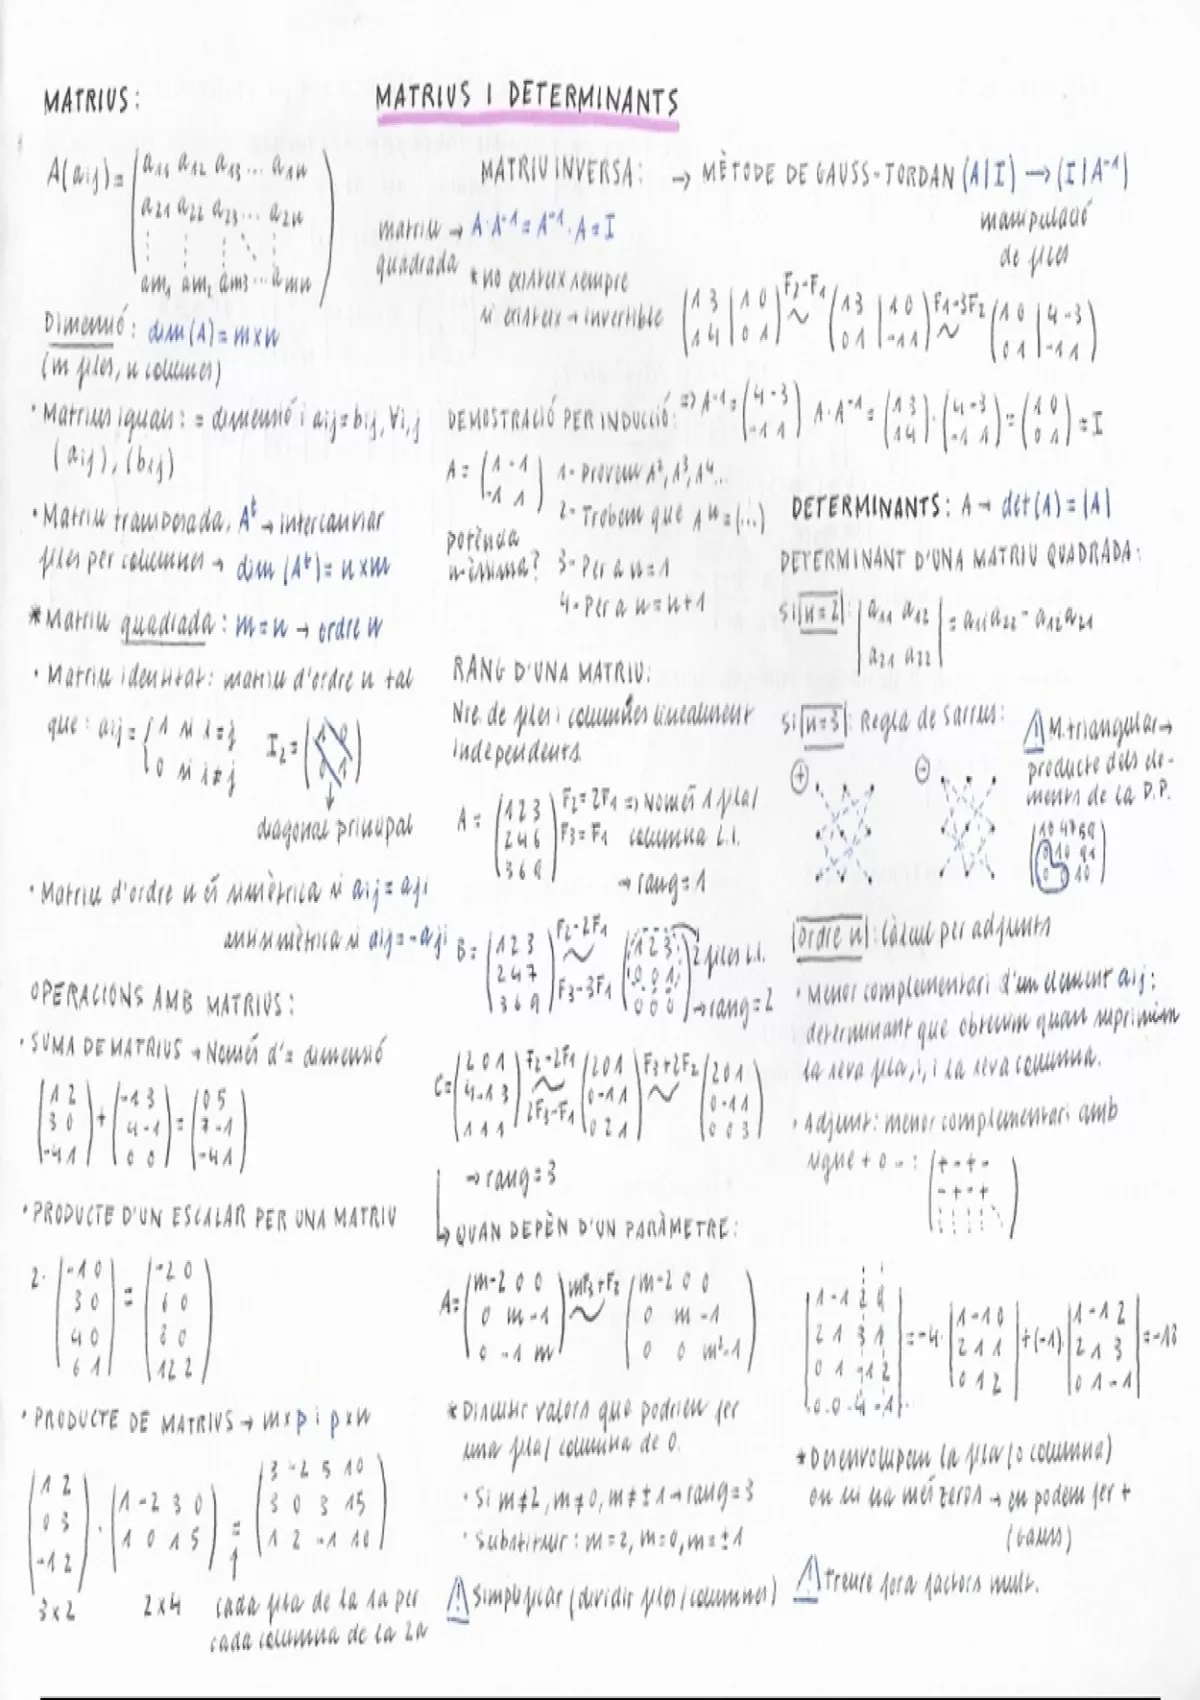 MATRIUS I DETERMINANTS
MATRIUS:
A(aij) = (a11 a12 a13 ... a1n
a21 a22 a23 ... a2n
am1 am2 am3 ... amn)
Dimensió: dim (A) = m x n
(m files, n columnes)
· Matrius iguals: = dimensió i aij = bij, ∀i,j
(aij), (bij)
· Matriu transposada, Aᵗ → intercanviar
files per columnes → dim (Aᵗ) = n x m
* Matriu quadrada: m = n → ordre n
· Matriu identitat: matriu d'ordre n tal
que: aij = { 1 si i = j
0 si i ≠ j
I2 = (1 0
0 1)
diagonal principal
· Matriu d'ordre n és simètrica si aij = aji
antisimètrica si aij = -aji
OPERACIONS AMB MATRIUS:
· SUMA DE MATRIUS → Només d' = dimensió
(1 2 + (-1 3 = (0 5
3 0 4 -1 7 -1
-4 1) 0 0) -4 1)
· PRODUCTE D'UN ESCALAR PER UNA MATRIU
2· (-1 0 = (-2 0
3 0 6 0
4 0 8 0
6 1) 12 2)
· PRODUCTE DE MATRIUS → m x p i p x n
(1 2 · (1 -2 3 0 = (3 -2 5 10
0 3 1 0 1 5) 3 0 3 15
-1 2) 1 2 -1 10)
3 x 2 2 x 4 cada fila de la 1a per
cada columna de la 2a
MATRIU INVERSA: → MÈTODE DE GAUSS-JORDAN (A|I) → (I|A⁻¹)
manipulació
de files
matriu → A·A⁻¹ = A⁻¹·A = I
quadrada
* no existeix sempre
si existeix → invertible
(1 3 | 1 0 F2-F1 (1 3 | 1 0 F1-3F2 (1 0 | 4 -3
1 4 | 0 1) ~ 0 1 | -1 1) ~ 0 1 | -1 1)
=> A⁻¹ = (4 -3 A·A⁻¹ = (1 3 · (4 -3 = (1 0 = I
-1 1) 1 4) -1 1) 0 1)
DEMOSTRACIÓ PER INDUCCIÓ:
A = (1 -1
-1 1)
potència
n-èssima?
1- Provem A², A³, A⁴...
2- Trobem que Aⁿ = (...)
3- Per a n = 1
4- Per a n = n+1
RANG D'UNA MATRIU:
Nre. de files i columnes linealment
independents.
A = (1 2 3 F2 = 2F1 => Només 1 fila/
2 4 6 F3 = F1 columna L.I.
3 6 9) → rang = 1
B = (1 2 3 F2-2F1 (1 2 3 2 files L.I.
2 4 7 ~ 0 0 1
3 6 9) F3-3F1 0 0 0) → rang = 2
C = (2 0 1 F2-2F1 (2 0 1 F3+2F2 (2 0 1
4 -1 3 ~ 0 -1 1 ~ 0 -1 1
1 1 1) 2F3-F1 0 2 1) 0 0 3)
→ rang = 3
↳ QUAN DEPÈN D'UN PARÀMETRE:
A = (m-2 0 0 mF3+F2 (m-2 0 0
0 m -1 ~ 0 m -1
0 -1 m) 0 0 m²-1)
* Discutir valors que podrien fer
una fila/columna de 0.
· Si m ≠ 2, m ≠ 0, m ≠ ±1 → rang = 3
· Substituir: m = 2, m = 0, m = ±1
⚠ Simplificar (dividir files/columnes)
DETERMINANTS: A → det(A) = |A|
DETERMINANT D'UNA MATRIU QUADRADA:
Si n = 2: |a11 a12
a21 a22| = a11a22 - a12a21
Si n = 3: Regla de Sarrus:
+ -
⚠ M. triangular →
producte dels ele-
ments de la D.P.
ordre n: Càlcul per adjunts
· Menor complementari d'un element aij:
determinant que obtenim quan suprimim
la seva fila, i, i la seva columna.
· Adjunt: menor complementari amb
signe + o -: (+ - + -
- + - +
)
|1 -1 2 0 = -4· |1 -1 0 + (-1)· |1 -1 2 = -18
2 1 3 1 2 1 1 2 1 3
0 1 -1 2 0 1 2| 0 1 -1|
0 0 4 -1|
* Desenvolupem la fila (o columna)
on hi ha més zeros → en podem fer +
(Gauss)
⚠ Treure fora factors mult.